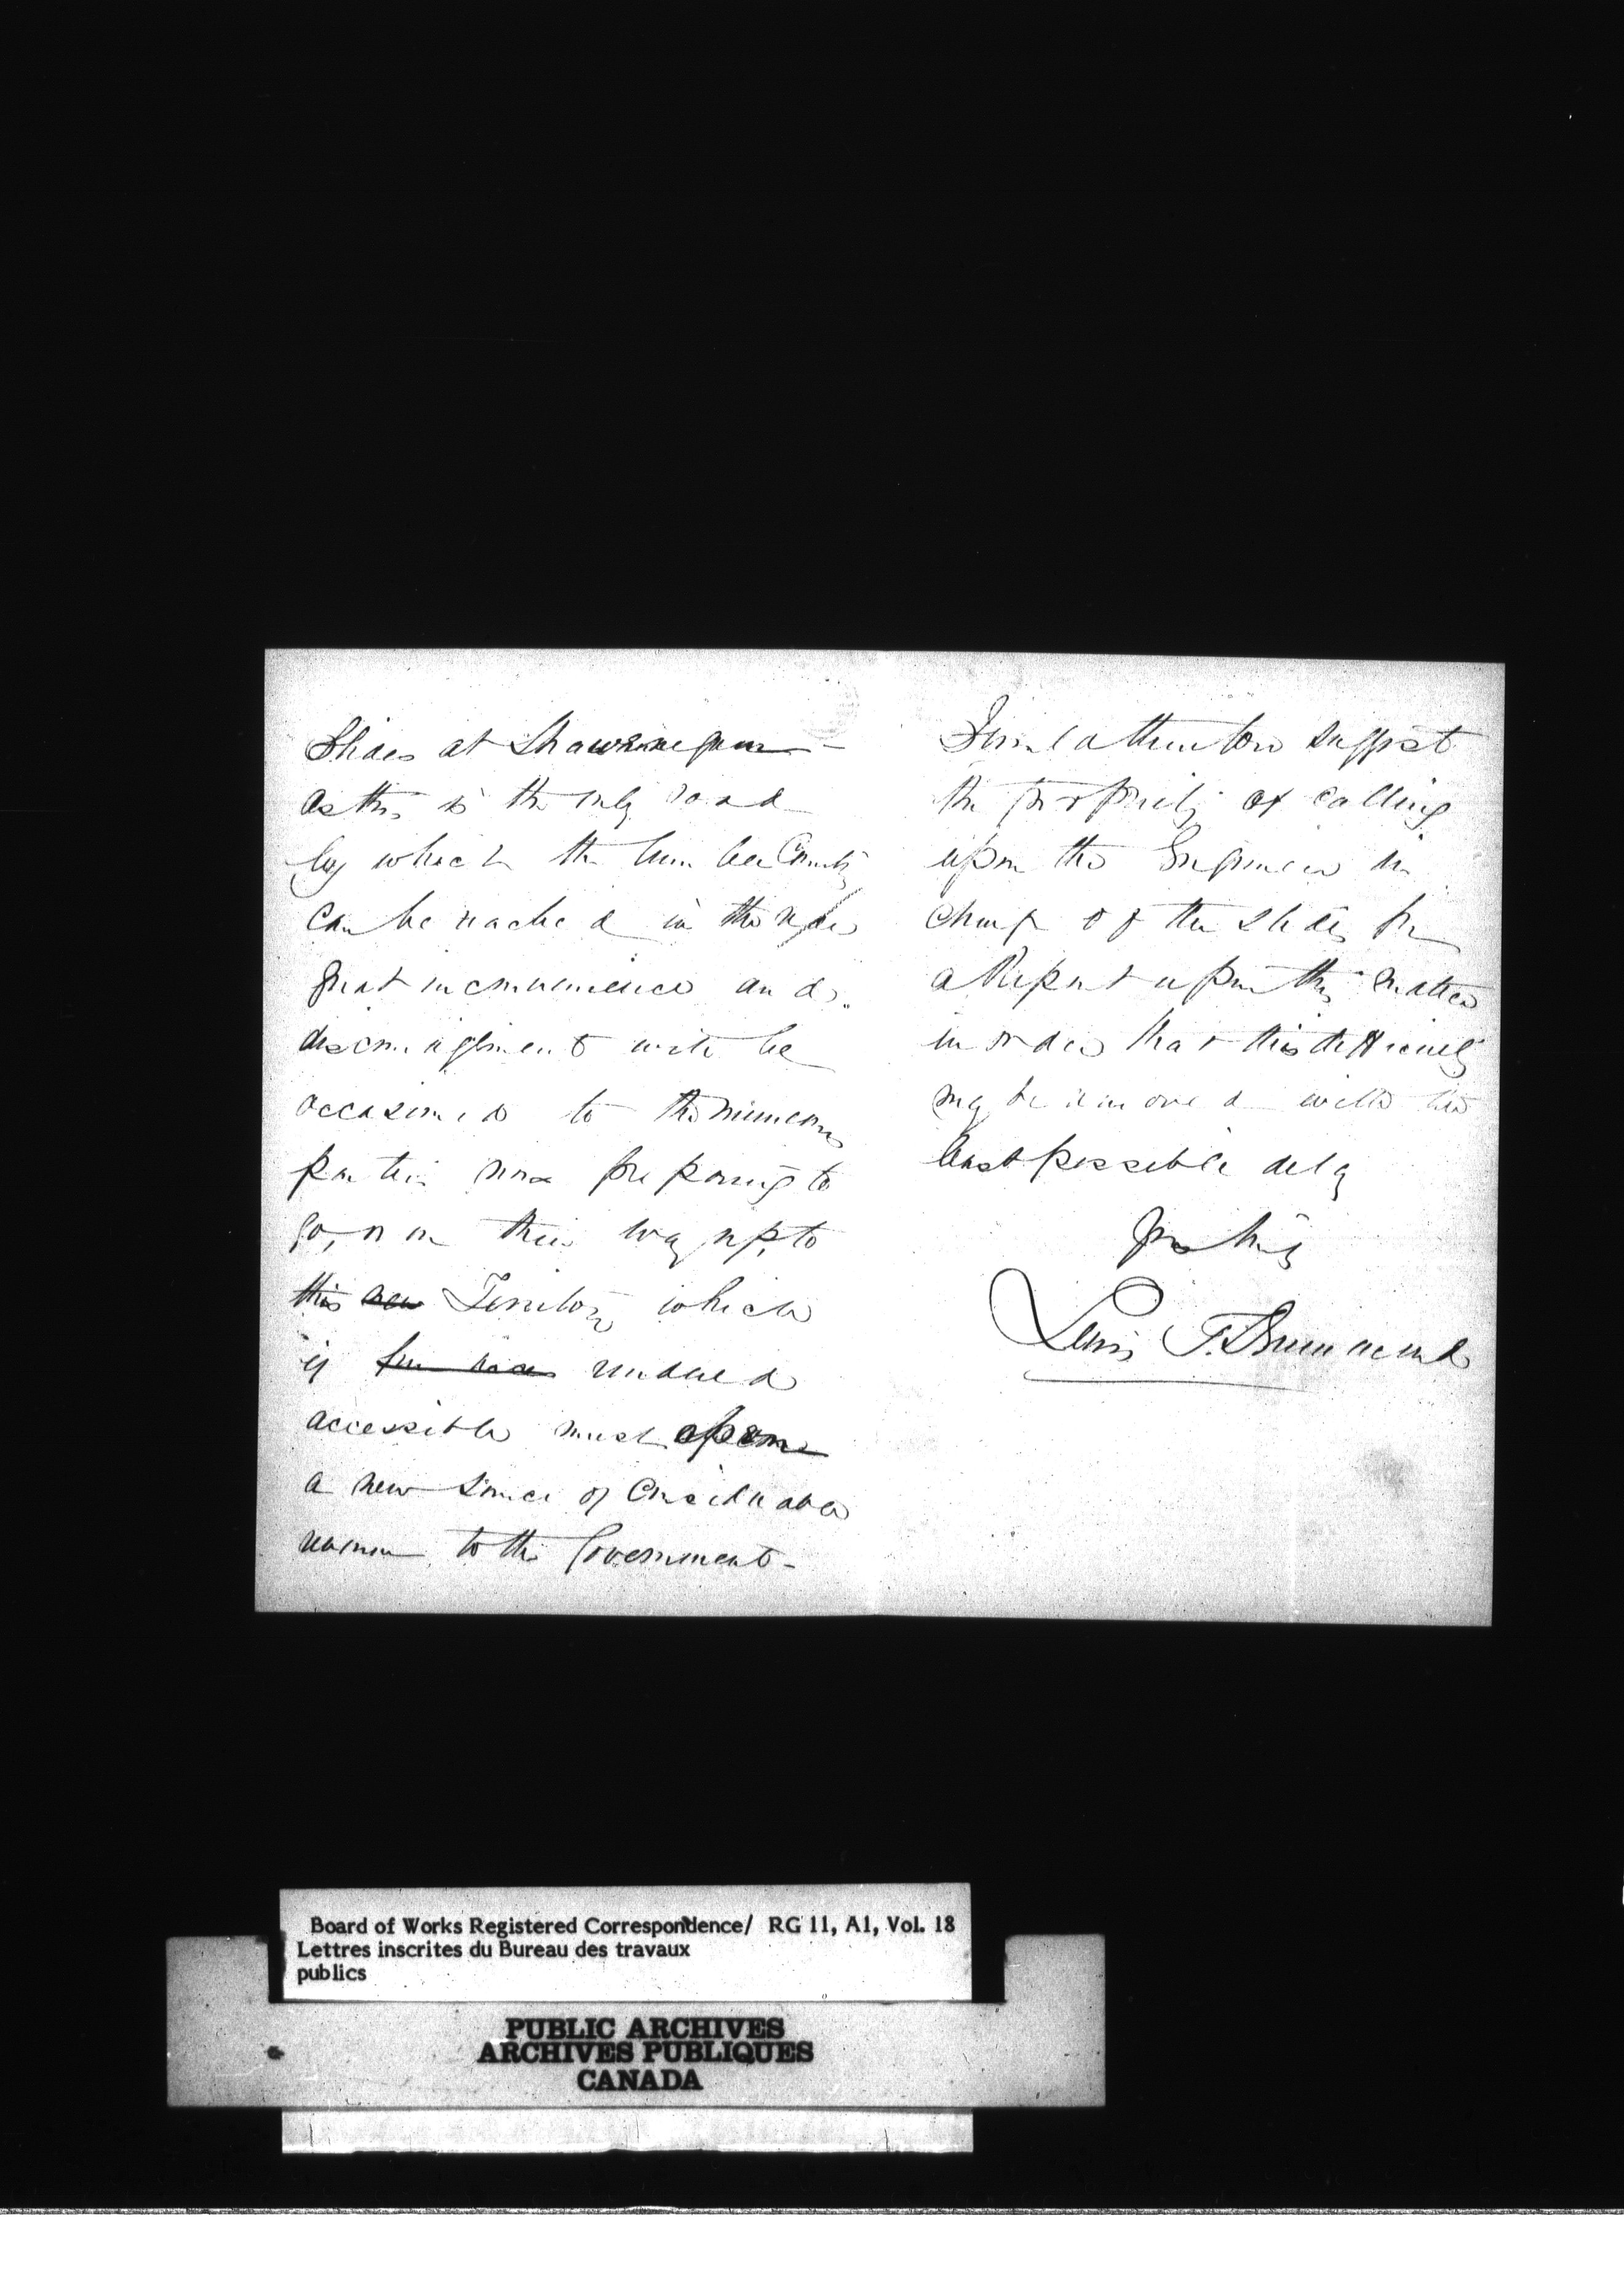 Slides at Shawinegam -
As this is the only road
by which the lumber County
can be reached in the
great inconvenience and
discouragement will be
occasioned to the numerous
parties now preparing to
go, or on their way up, to
this new Territory which
if rendered
accessible must open
a new source of Considerable
revenue to the Government -
I would therefore suggest
the propriety of calling
upon the Engineer in
charge of the slides for
a Report upon this matter
in order that this difficulty
may be removed with the
least possible delay
Yrs truly
Lewis T. Drummond
Board of Works Registered Correspondence/ RG 11, A1, Vol. 18
Lettres inscrites du Bureau des travaux
publics
PUBLIC ARCHIVES
ARCHIVES PUBLIQUES
CANADA